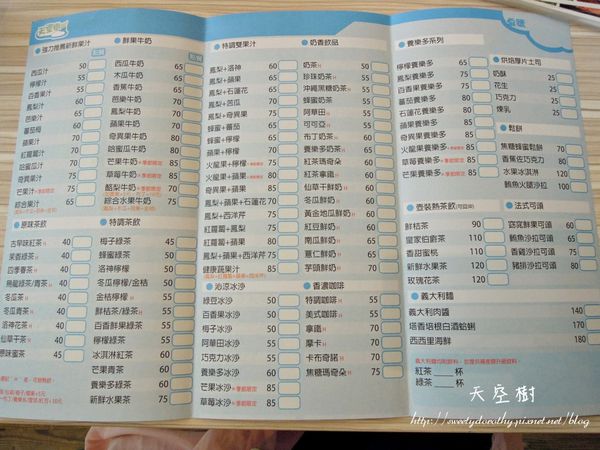 天空樹
點購
強力推薦新鮮果汁
西瓜汁 50
檸檬汁 55
百香果汁 55
鳳梨汁 60
芭樂汁 65
蕃茄梅 60
蘋果汁 60
紅蘿蔔汁 60
哈蜜瓜汁 60
奇異果汁 75
芒果汁 75
綜合果汁 65
原味茶飲
古早味紅茶 40
茉香綠茶 40
四季春茶 40
烏龍綠茶/青茶 40
冬瓜茶 40
冬瓜青茶 40
洛神花茶 40
仙草干茶 40
原味蜜茶 45
鮮果牛奶
西瓜牛奶 65
木瓜牛奶 65
香蕉牛奶 65
芭樂牛奶 70
鳳梨牛奶 70
蘋果牛奶 70
奇異果牛奶 85
哈蜜瓜牛奶 75
芒果牛奶 85
草莓牛奶 85
酪梨牛奶 75
綜合水果牛奶 75
特調茶飲
梅子綠茶 45
蜂蜜綠茶 50
洛神檸檬 50
冬瓜檸檬/金桔 50
金桔檸檬 55
鮮桔茶/綠茶 55
百香鮮果綠茶 55
檸檬綠茶 55
冰淇淋紅茶 60
芒果青茶 60
養樂多綠茶 60
新鮮水果茶 70
特調雙果汁
鳳梨+洛神 60
鳳梨+檸檬 65
鳳梨+石蓮花 65
鳳梨+苦瓜 65
蜂蜜+蕃茄 65
蜂蜜+檸檬 60
蘋果+檸檬 70
火龍果+檸檬 75
奇異果+蘋果 85
鳳梨+蘋果+石蓮花 70
鳳梨+西洋芹 75
紅蘿蔔+鳳梨 75
紅蘿蔔+蘋果 75
鳳梨+蘋果+西洋芹 75
健康蔬果汁 85
沁涼冰沙
綠豆冰沙 50
百香果冰沙 70
梅子冰沙 55
阿華田冰沙 55
巧克力冰沙 55
養樂多冰沙 60
芒果冰沙 85
草莓冰沙 85
奶香飲品
奶茶 50
珍珠奶茶 50
沖繩黑糖奶茶 50
蜂蜜奶茶 55
阿華田 55
可可亞 55
布丁奶茶 60
養樂多奶茶 60
紅茶瑪奇朵 60
紅茶拿鐵 60
仙草干鮮奶 60
冬瓜鮮奶 60
黃金地瓜鮮奶 65
紅豆鮮奶 60
南瓜鮮奶 65
薏仁鮮奶 65
芋頭鮮奶 65
香濃咖啡
特調咖啡 55
美式咖啡 55
拿鐵 70
摩卡 70
卡布奇諾 70
焦糖瑪奇朵 75
養樂多系列
檸檬養樂多 65
百香養樂多 65
蕃茄養樂多 65
石蓮花養樂多 65
鳳梨養樂多 65
蘋果養樂多 65
奇異果養樂多 75
火龍果養樂多 75
草莓養樂多 75
芒果養樂多 75
壺裝熱茶飲
鮮桔茶 90
皇家伯爵茶 120
香甜蜜桃 110
新鮮水果茶 120
玫瑰花茶 120
烘焙厚片土司
奶酥 25
花生 25
巧克力 25
煉乳 25
鬆餅
焦糖蜂蜜鬆餅 60
香蕉佐巧克力 80
水果冰淇淋 120
鮪魚火腿沙拉 100
法式可頌
窈窕鮮果可頌 60
鮪魚沙拉可頌 65
香雞沙拉可頌 75
豬排沙拉可頌 80
義大利麵
義大利肉醬 140
塔香培根白酒蛤蜊 180
西西里海鮮 170
紅茶 杯
綠茶 杯
天空樹
http://sweetydorothy.pixnet.net/blog